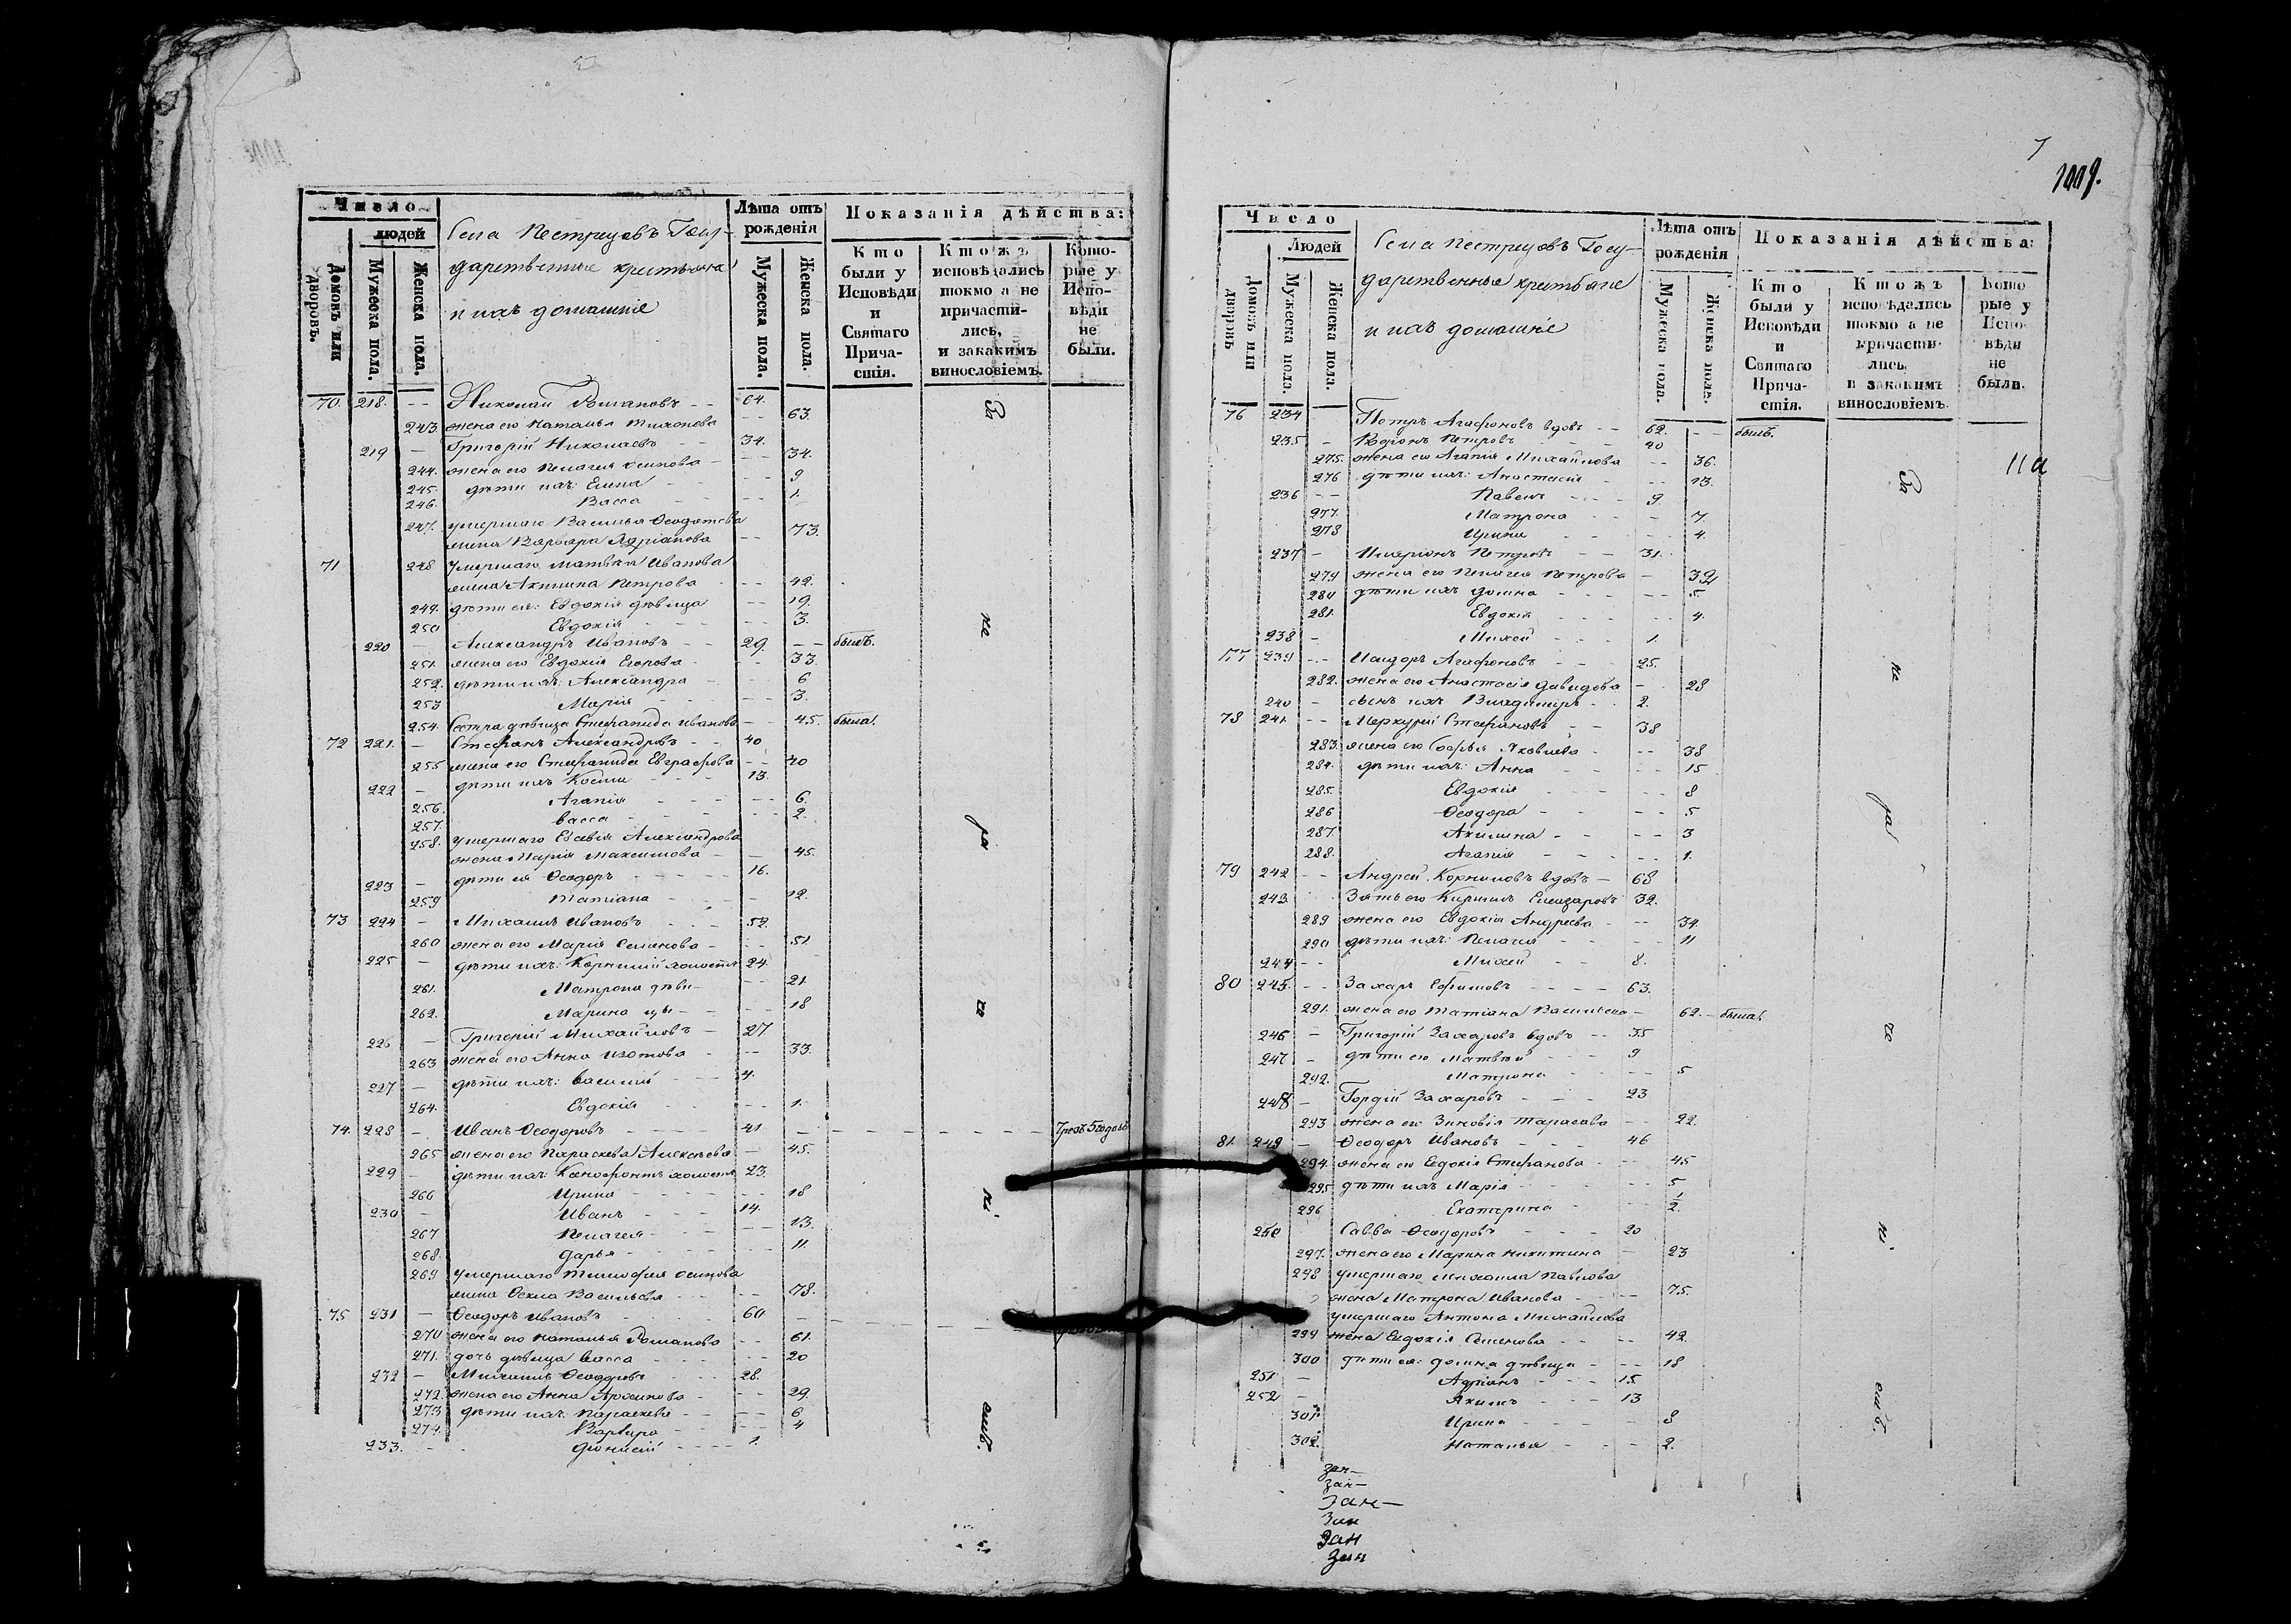 Число
людей
Домовъ или дворовъ.
Мужеска пола.
Женска пола.
Села Пестрецовъ Госу-
дарственные крестьяне
и ихъ домашніе
Лѣта отъ рожденія
Мужеска пола.
Женска пола.
Показанія дѣйства:
Кто были у Исповѣди и Святаго Прича-стія.
Кто жъ исповѣдались токмо а не причасти-лись, и закакимъ винословіемъ.
Кото-рые у Испо-вѣди не были.
70. 218. -- Николай Романовъ -- 64.
243. жена его Наталья Тихонова -- 63.
219 — Григорій Николаевъ -- 34.
244. жена его Пелагея Осипова -- 34.
245. дѣти ихъ: Елена -- 9
246. Васса -- 1.
247. умершаго Василья
жена Варвара Адріанова -- 73.
71 248 Умершаго Матвѣя Иванова
жена Акилина Петрова -- 42.
249. дѣти ея: Евдокія дѣвица -- 19.
250 Евдокія -- 3.
220 — Александръ Ивановъ -- 29. -- былъ.
251. жена его Евдокія Егорова -- 33.
252. дѣти ихъ: Александра -- 6
253 Марія -- 3.
254. Сестра дѣвица Стефанида Иванова -- 45. была.
72 221. — Стефанъ Александровъ -- 40
255 жена его Стефанида Евграфова -- 40
222 — дѣти ихъ Косма -- 13.
256. Агапія -- 6.
257. Васса -- 2.
258. умершаго Евсевія Александрова
жена Марія Максимова -- 45.
223 — дѣти ея Ѳеодоръ -- 16.
259 Татіана -- 12.
73 224 — Михаилъ Ивановъ -- 52.
260 жена его Марія Семенова -- 51.
225 — дѣти ихъ: Корнилій холостъ 24.
261. Матрона дѣви- -- 21.
262. Марина цы -- 18
226 — Григорій Михайловъ -- 27.
263 жена его Анна Изотова -- 33.
227 — дѣти ихъ: Василій -- 4.
264. Евдокія -- 1.
74. 228 — Иванъ Ѳеодоровъ -- 41 Чрезъ 5 годовъ
265 жена его Параскева Алексѣева -- 45.
229 — дѣти ихъ: Ксенофонтъ холостъ 23.
266 Ирина -- 18
230 — Иванъ -- 14.
267 Пелагея -- 13.
268. Дарья -- 11.
269 умершаго Тимофея Осипова
жена Ѳекла Васильева -- 78.
75 231 — Ѳеодоръ Ивановъ -- 60
270 жена его Наталья Романова -- 61.
271. дочь дѣвица Васса -- 20
232 — Михаилъ Ѳеодоровъ -- 28.
272. жена его Анна Архипова -- 29.
273 дѣти ихъ: Параскева -- 6
274. Варвара -- 4
233. -- Діонисій -- 1.
За
не
ра
че
ні
емъ.
1009.
11а
Число
Людей
Домовъ или дворовъ
Мужеска пола.
Женска пола.
Села Пестрецовъ Госу-
дарственные крестьяне
и ихъ домашніе
Лѣта отъ рожденія
Мужеска пола.
Женска пола.
Показанія дѣйства:
Кто были у Исповѣди и Святаго Прича-стія.
Кто жъ исповѣдались токмо а не причасти-лись, и закакимъ винословіемъ.
Кото рые у Испо-вѣди не были.
76 234 — Петръ Агафоновъ вдовъ -- 62. -- былъ.
235 — Родіонъ Петровъ 40
275. жена его Агапія Михайлова -- 36.
276 дѣти ихъ: Анастасія -- 13.
236 -- Павелъ -- 9.
277. Матрона -- 7.
278 Ирина -- 4.
237 — Иларіонъ Петровъ -- 31.
279 жена его Пелагея Петрова — 32
280 дѣти ихъ Домна -- 5
281. Евдокія -- 4.
238 — Михей -- 1.
77 239 -- Исидоръ Агафоновъ -- 25.
282. жена его Анастасія Давидова — 28
240 — сынъ ихъ Владимиръ -- 2.
78 241. -- Меркурій Стефановъ -- 38
283. жена его Софья Яковлева -- 38
284. дѣти ихъ: Анна -- 15
285. Евдокія -- 8
286 Ѳеодора -- 5
287. Акилина -- 3
288. Агапія -- 1.
79 242 -- Андрей Корниловъ вдовъ — 68
243. Зять его Кирилъ Елеазаровъ 32.
289 жена его Евдокія Андреева -- 34.
290 дѣти ихъ: Пелагея -- 11
244 -- Михей -- 8.
80 245. -- Захаръ Ефимовъ -- 63.
291. жена его Татіана Васильева — 62. — была.
246 — Григорій Захаровъ вдовъ -- 35
247 — дѣти его Матвѣй -- 9
292. Матрона -- 5
248 — Гордій Захаровъ -- 23
293 жена его Зиновія Тарасова -- 22.
81. 249 — Ѳеодоръ Ивановъ -- 46
294. жена его Евдокія Стефанова -- 45
295 дѣти ихъ Марія -- 5
296 Екатерина -- 1/2.
250 Савва Ѳеодоровъ -- 20
297. жена его Марина Никитина — 23
298 умершаго Михаила Павлова
жена Матрона Иванова -- 75.
умершаго Антона Михайлова
299 жена Евдокія Семенова -- 42.
300 дѣти ея: Домна дѣвица -- 18
251 — Адріанъ -- 15.
252 — Якимъ -- 13
301. Ирина -- 8
302. Наталья -- 2.
За
не
ра
че
ні
емъ.
зан—
зан—
Зан—
Зан
Зан
Зан